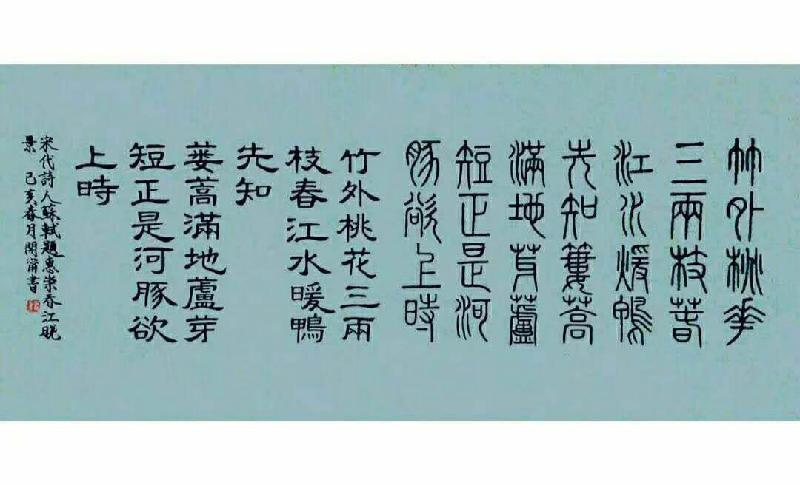 竹外桃華
三兩枝春
江水煖鴨
先知蔞蒿
滿地芽蘆
短正是河
豚欲上時
竹外桃花三兩
枝春江水暖鴨
先知
蔞蒿滿地蘆芽
短正是河豚欲
上時
宋代詩人蘇軾題惠崇春江晚
景 己亥春月開濟書